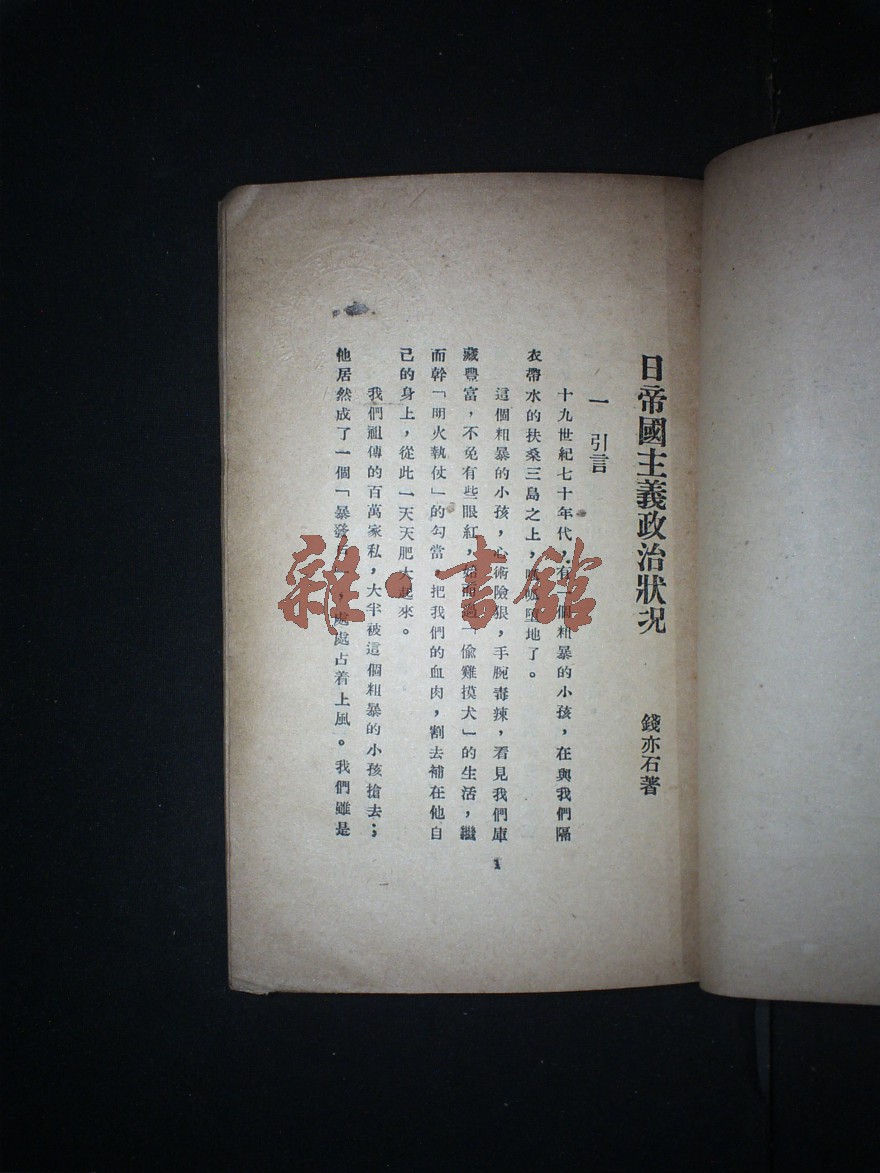 日帝國主義政治狀况
錢亦石著
一 引言
十九世紀七十年代，有一個粗暴的小孩，在與我們隔
衣帶水的扶桑三島之上，墮地了。
這個粗暴的小孩，心術險狠，手腕毒辣，看見我們庫
藏豐富，不免有些眼紅，始而過「偷雞摸犬」的生活，繼
而幹「明火執仗」的勾當，把我們的血肉，割去補在他自
己的身上，從此一天天肥大起來。
我們祖傳的百萬家私，大半被這個粗暴的小孩搶去；
他居然成了一個「暴發戶」，處處占着上風。我們雖是
1
雜·書館